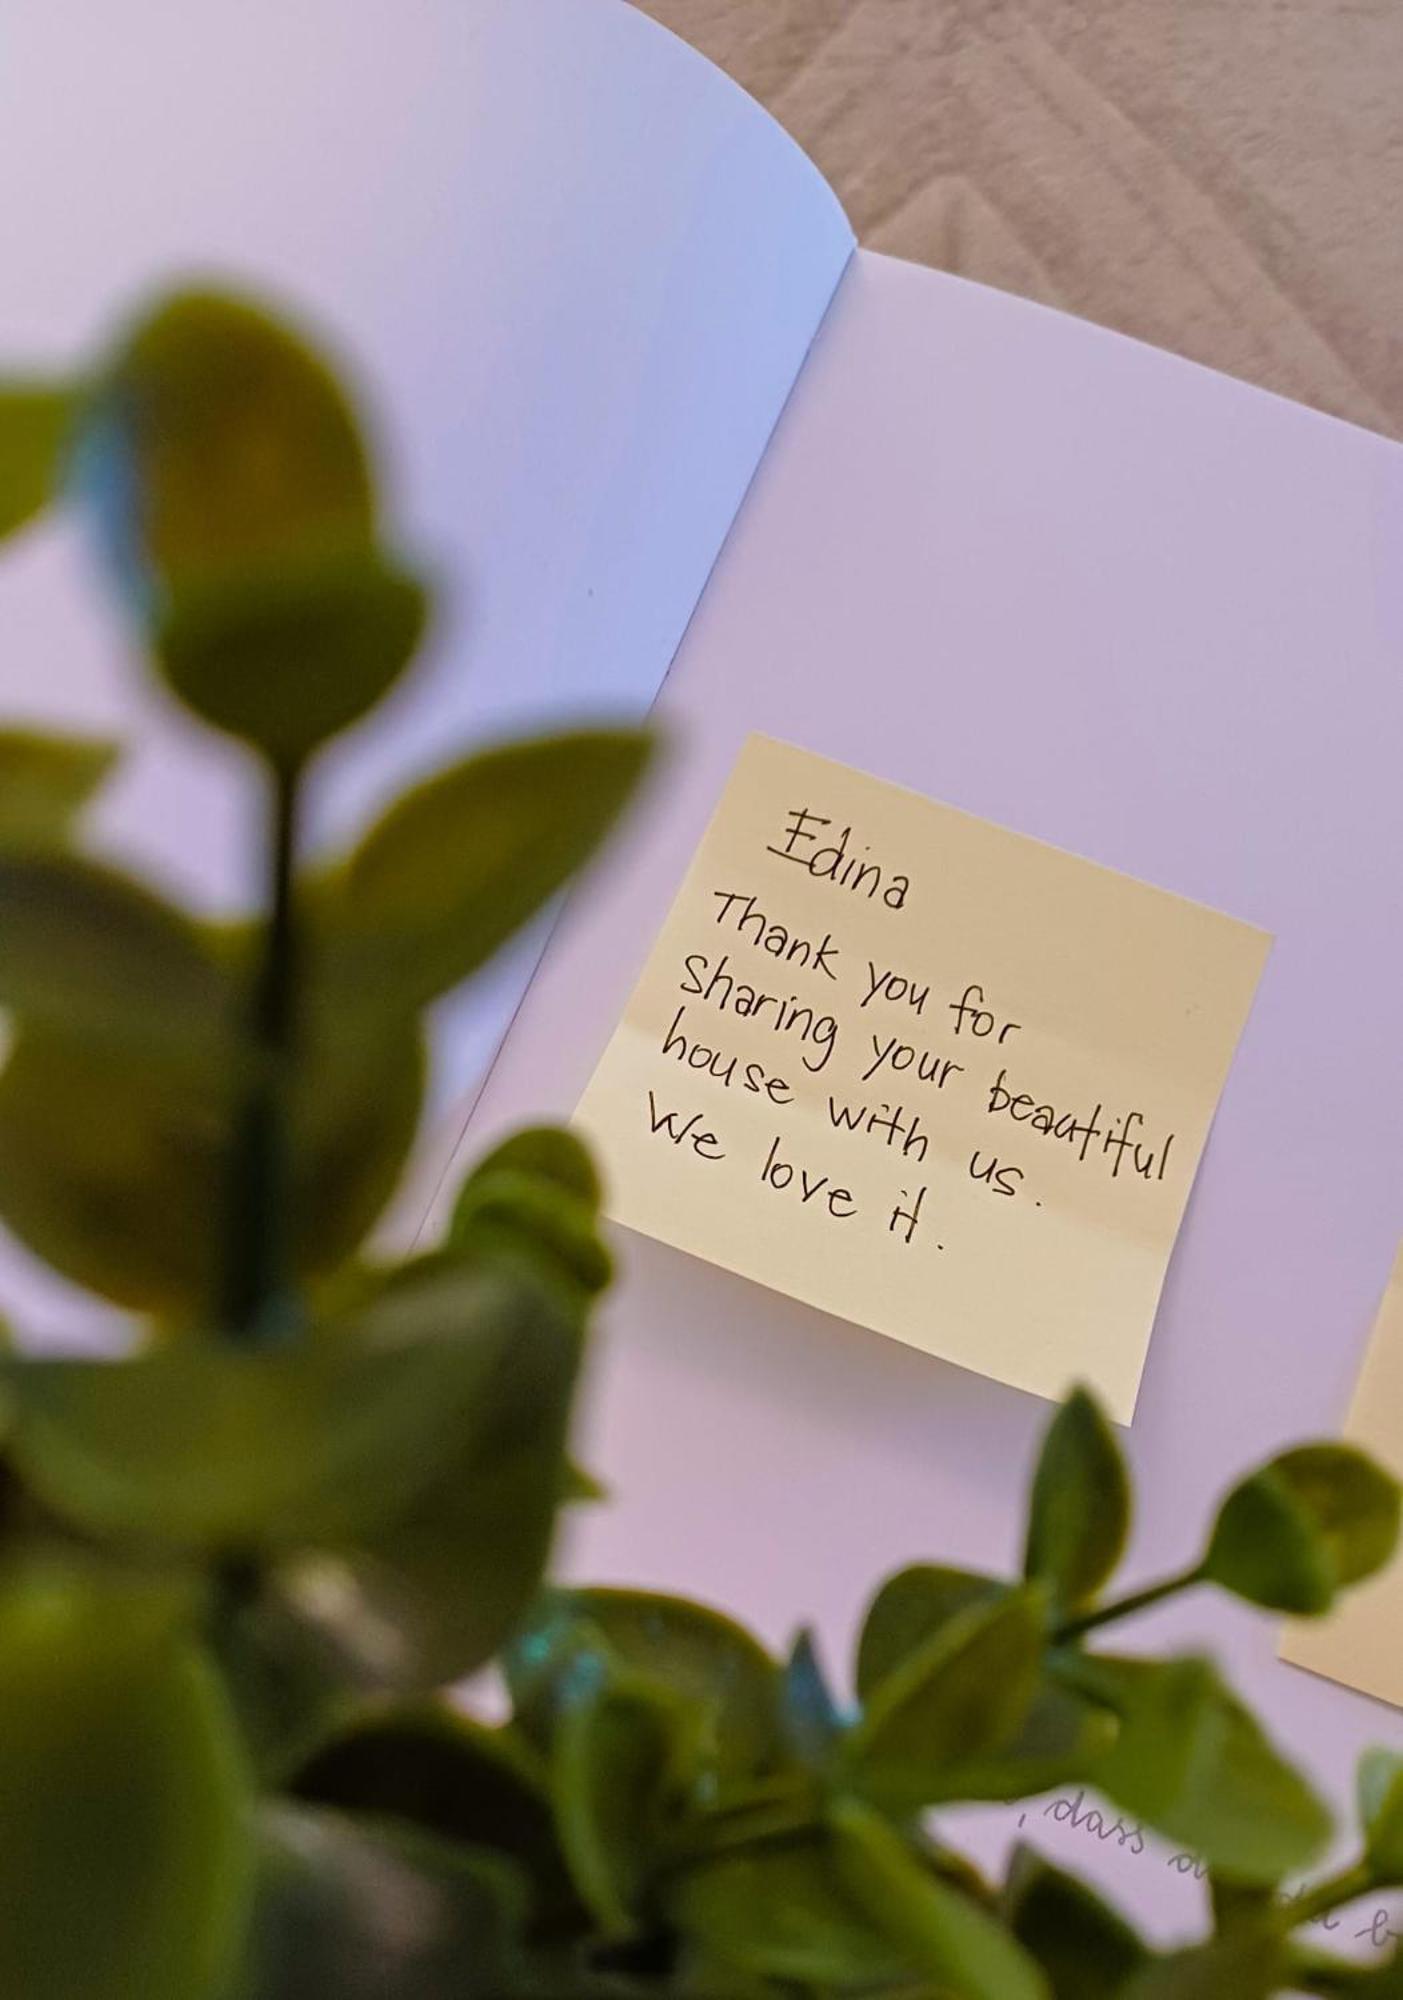 Edina
Thank you for
sharing your beautiful
house with us.
We love it.
, dass